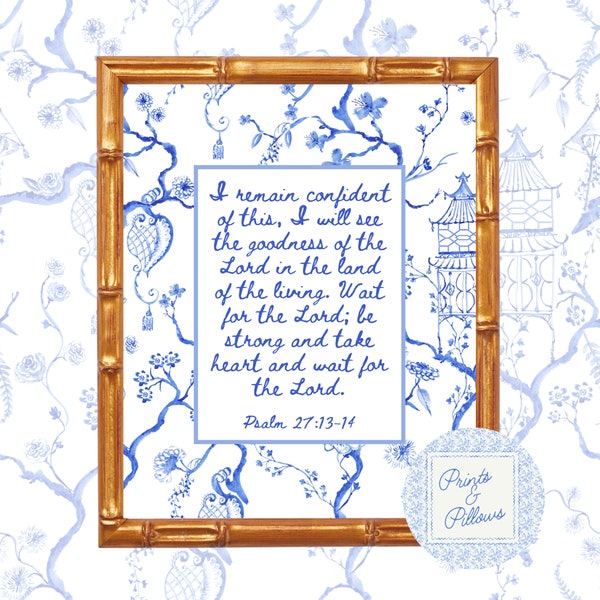 I remain confident
of this, I will see
the goodness of the
Lord in the land
of the living. Wait
for the Lord; be
strong and take
heart and wait for
the Lord.
Psalm 27:13-14
Prints
&
Pillows